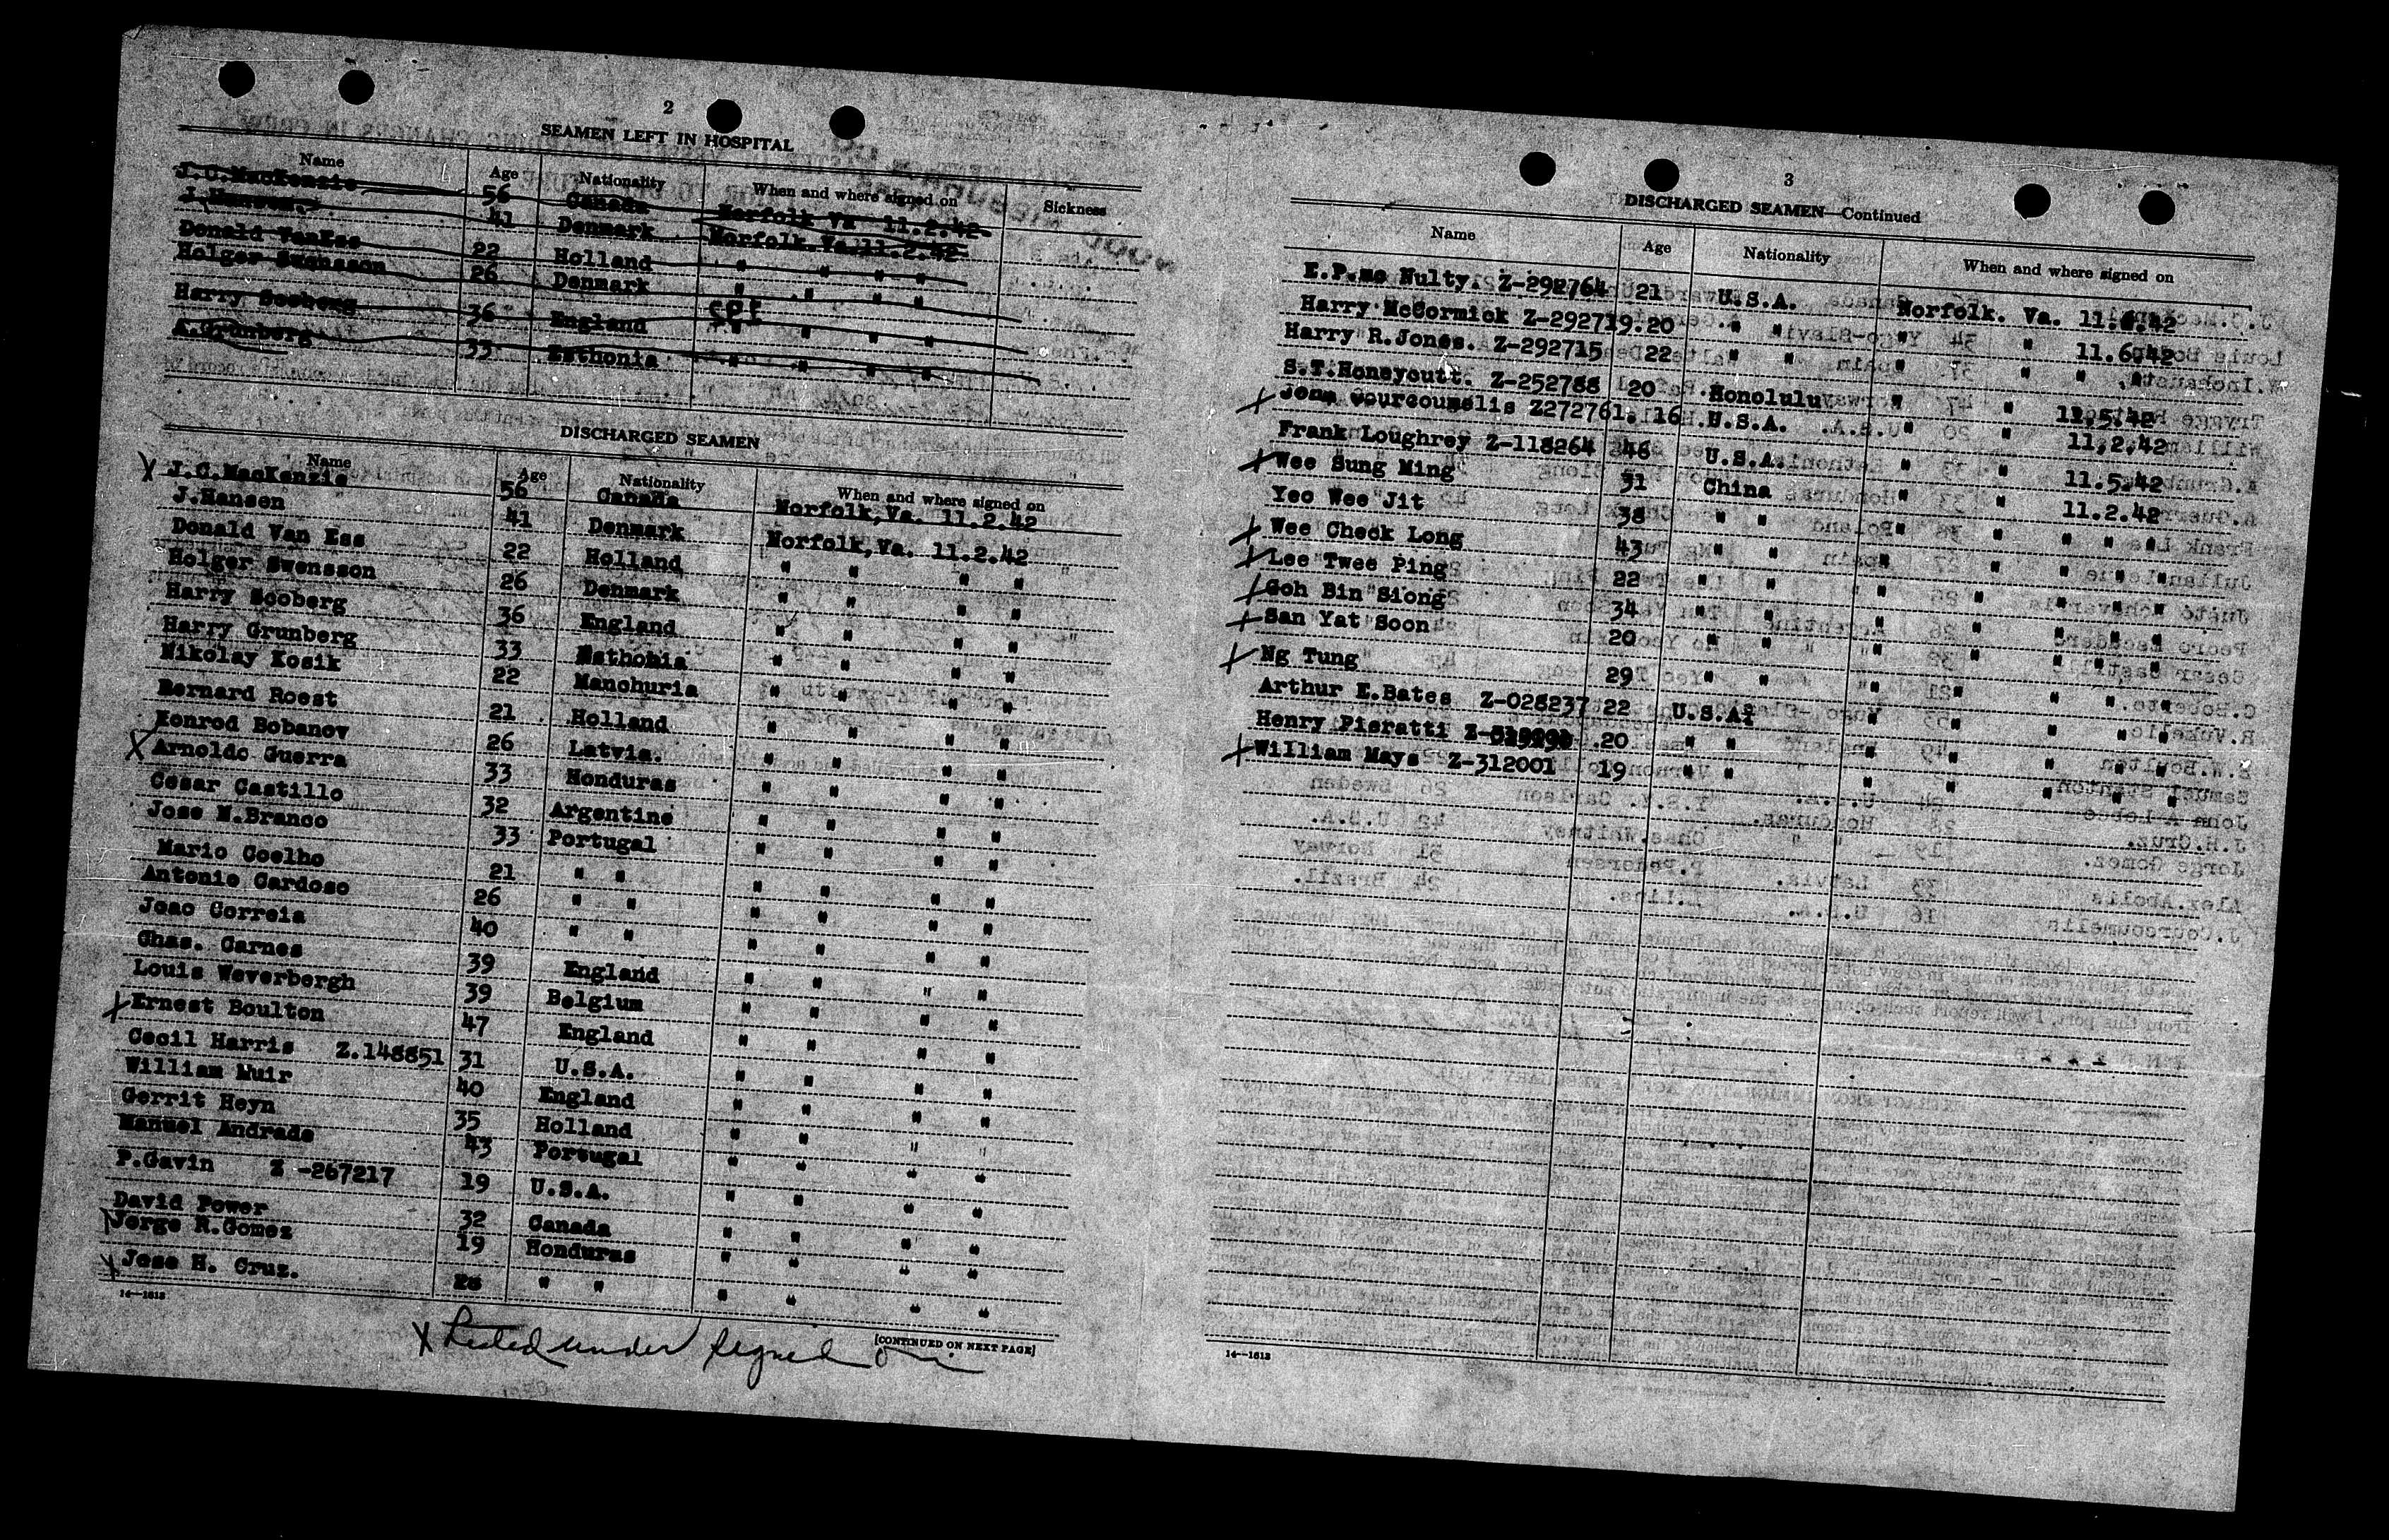 2
SEAMEN LEFT IN HOSPITAL
Name Age Nationality When and where signed on Sickness
J.C.MacKenzie 56 Canada Norfolk Va 11.2.42
J.Hansen. 41 Denmark Norfolk.Va.11.2.42
Donald VanEss 22 Holland " " " "
Holger Swensson 26 Denmark " " " "
Harry Sooberg 36 England " " " "
A.Grunberg 33 Esthonia " " " "
DISCHARGED SEAMEN
Name Age Nationality When and where signed on
X J.C.MacKenzie 56 Canada Norfolk,Va. 11.2.42
J.Hansen 41 Denmark Norfolk,Va. 11.2.42
Donald Van Ess 22 Holland " " " "
Holger Swensson 26 Denmark " " " "
Harry Sooberg 36 England " " " "
Harry Grunberg 33 Esthonia " " " "
Nikolay Kosik 22 Manchuria " " " "
Bernard Roest 21 Holland " " " "
Konrod Bobanov 26 Latvia. " " " "
X Arnoldo Guerra 33 Honduras " " " "
Cesar Castillo 32 Argentine " " " "
Jose M.Branco 33 Portugal " " " "
Mario Coelho 21 " " " " " "
Antonio Cardoso 26 " " " " " "
Joao Correia 40 " " " " " "
Chas. Carnes 39 England " " " "
Louis Weverbergh 39 Belgium " " " "
X Ernest Boulton 47 England " " " "
Cecil Harris Z.148851 31 U.S.A. " " " "
William Muir 40 England " " " "
Gerrit Heyn 35 Holland " " " "
Manuel Andrade 43 Portugal " " " "
P.Gavin Z -267217 19 U.S.A. " " " "
David Power 32 Canada " " " "
X Jorge R.Gomez 19 Honduras " " " "
X Jose H. Cruz. 28 " " " " " "
14—1613
[CONTINUED ON NEXT PAGE]
X Listed under signed on
3
DISCHARGED SEAMEN—Continued
Name Age Nationality When and where signed on
E.P.mc Nulty. Z-292764 21 U.S.A. Norfolk. Va. 11.6.42
Harry McCormick Z-292719. 20 " " " " 11.6.42
Harry R.Jones. Z-292715 22 " " " " "
S.T.Honeycutt. Z-252788 20 Honolulu " " 11.5.42
X Jona Courcoumelis Z272761. 16 U.S.A. " " 11.2.42
Frank Loughrey Z-118264 46 U.S.A. " " 11.5.42
X Wee Sung Ming 31 China " " 11.2.42
Yeo Wee Jit 38 " " " " " "
X Wee Cheok Long 43 " " " " " "
X Lee Twee Ping 22 " " " " " "
X Goh Bin Siong 34 " " " " " "
X San Yat Soon 20 " " " " " "
X Ng Tung 29 " " " " " "
Arthur E.Bates Z-028237 22 U.S.A. " " " "
Henry Pieratti 20 " " " " " "
X William Mays Z-312001 19 " " " " " "
14—1613